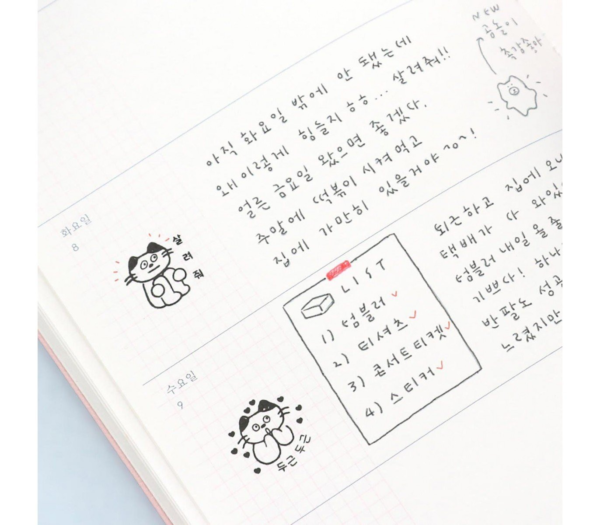 NEW
곰돌이
촉감좋아!
아직 화요일 밖에 안 됐는데
왜 이렇게 힘들지 ㅎㅎ... 살려줘!!
얼른 금요일 왔으면 좋겠다.
주말에 떡볶이 시켜 먹고
집에 가만히 있을거야 ㄱㅇㄱ!
화요일
8
살
려
줘
퇴근하고 집에 오니
택배가 다 와있
텀블러 내일 올 줄
기쁘다! 하나
반팔도 성공
느렸지만
LIST
1) 텀블러 ✓
2) 티셔츠 ✓
3) 콘서트티켓 ✓
4) 스티커 ✓
수요일
9
두근두근